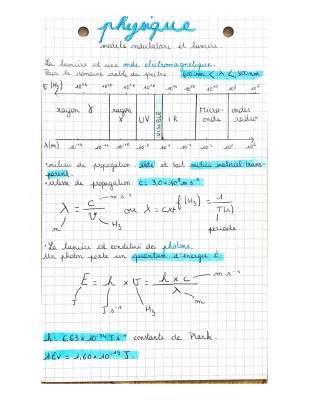 physique
modèle ondulatoire et lumière
La lumière est une onde électromagnétique.
Pour le domaine visible du spectre : 400nm < λ < 800nm
ν (Hz)
rayon γ
rayon X
UV
VISIBLE
IR
Micro-onde
ondes radio
λ(m)
• milieu de propagation : vide et tout milieu matériel trans-
parent.
• vitesse de propagation : c = 3,0×10⁸ m.s⁻¹
λ = c / ν
m.s⁻¹
m
Hz
ou
f (Hz) = 1 / T(s)
période
• La lumière est constituée de photons.
Un photon porte un quantum d'énergie E.
E = h × ν = h × c / λ
m.s⁻¹
J
J.s⁻¹
Hz
m
h = 6,63×10⁻³⁴ J.s⁻¹ constante de Plank.
1 EV = 1,60×10⁻¹⁹ J